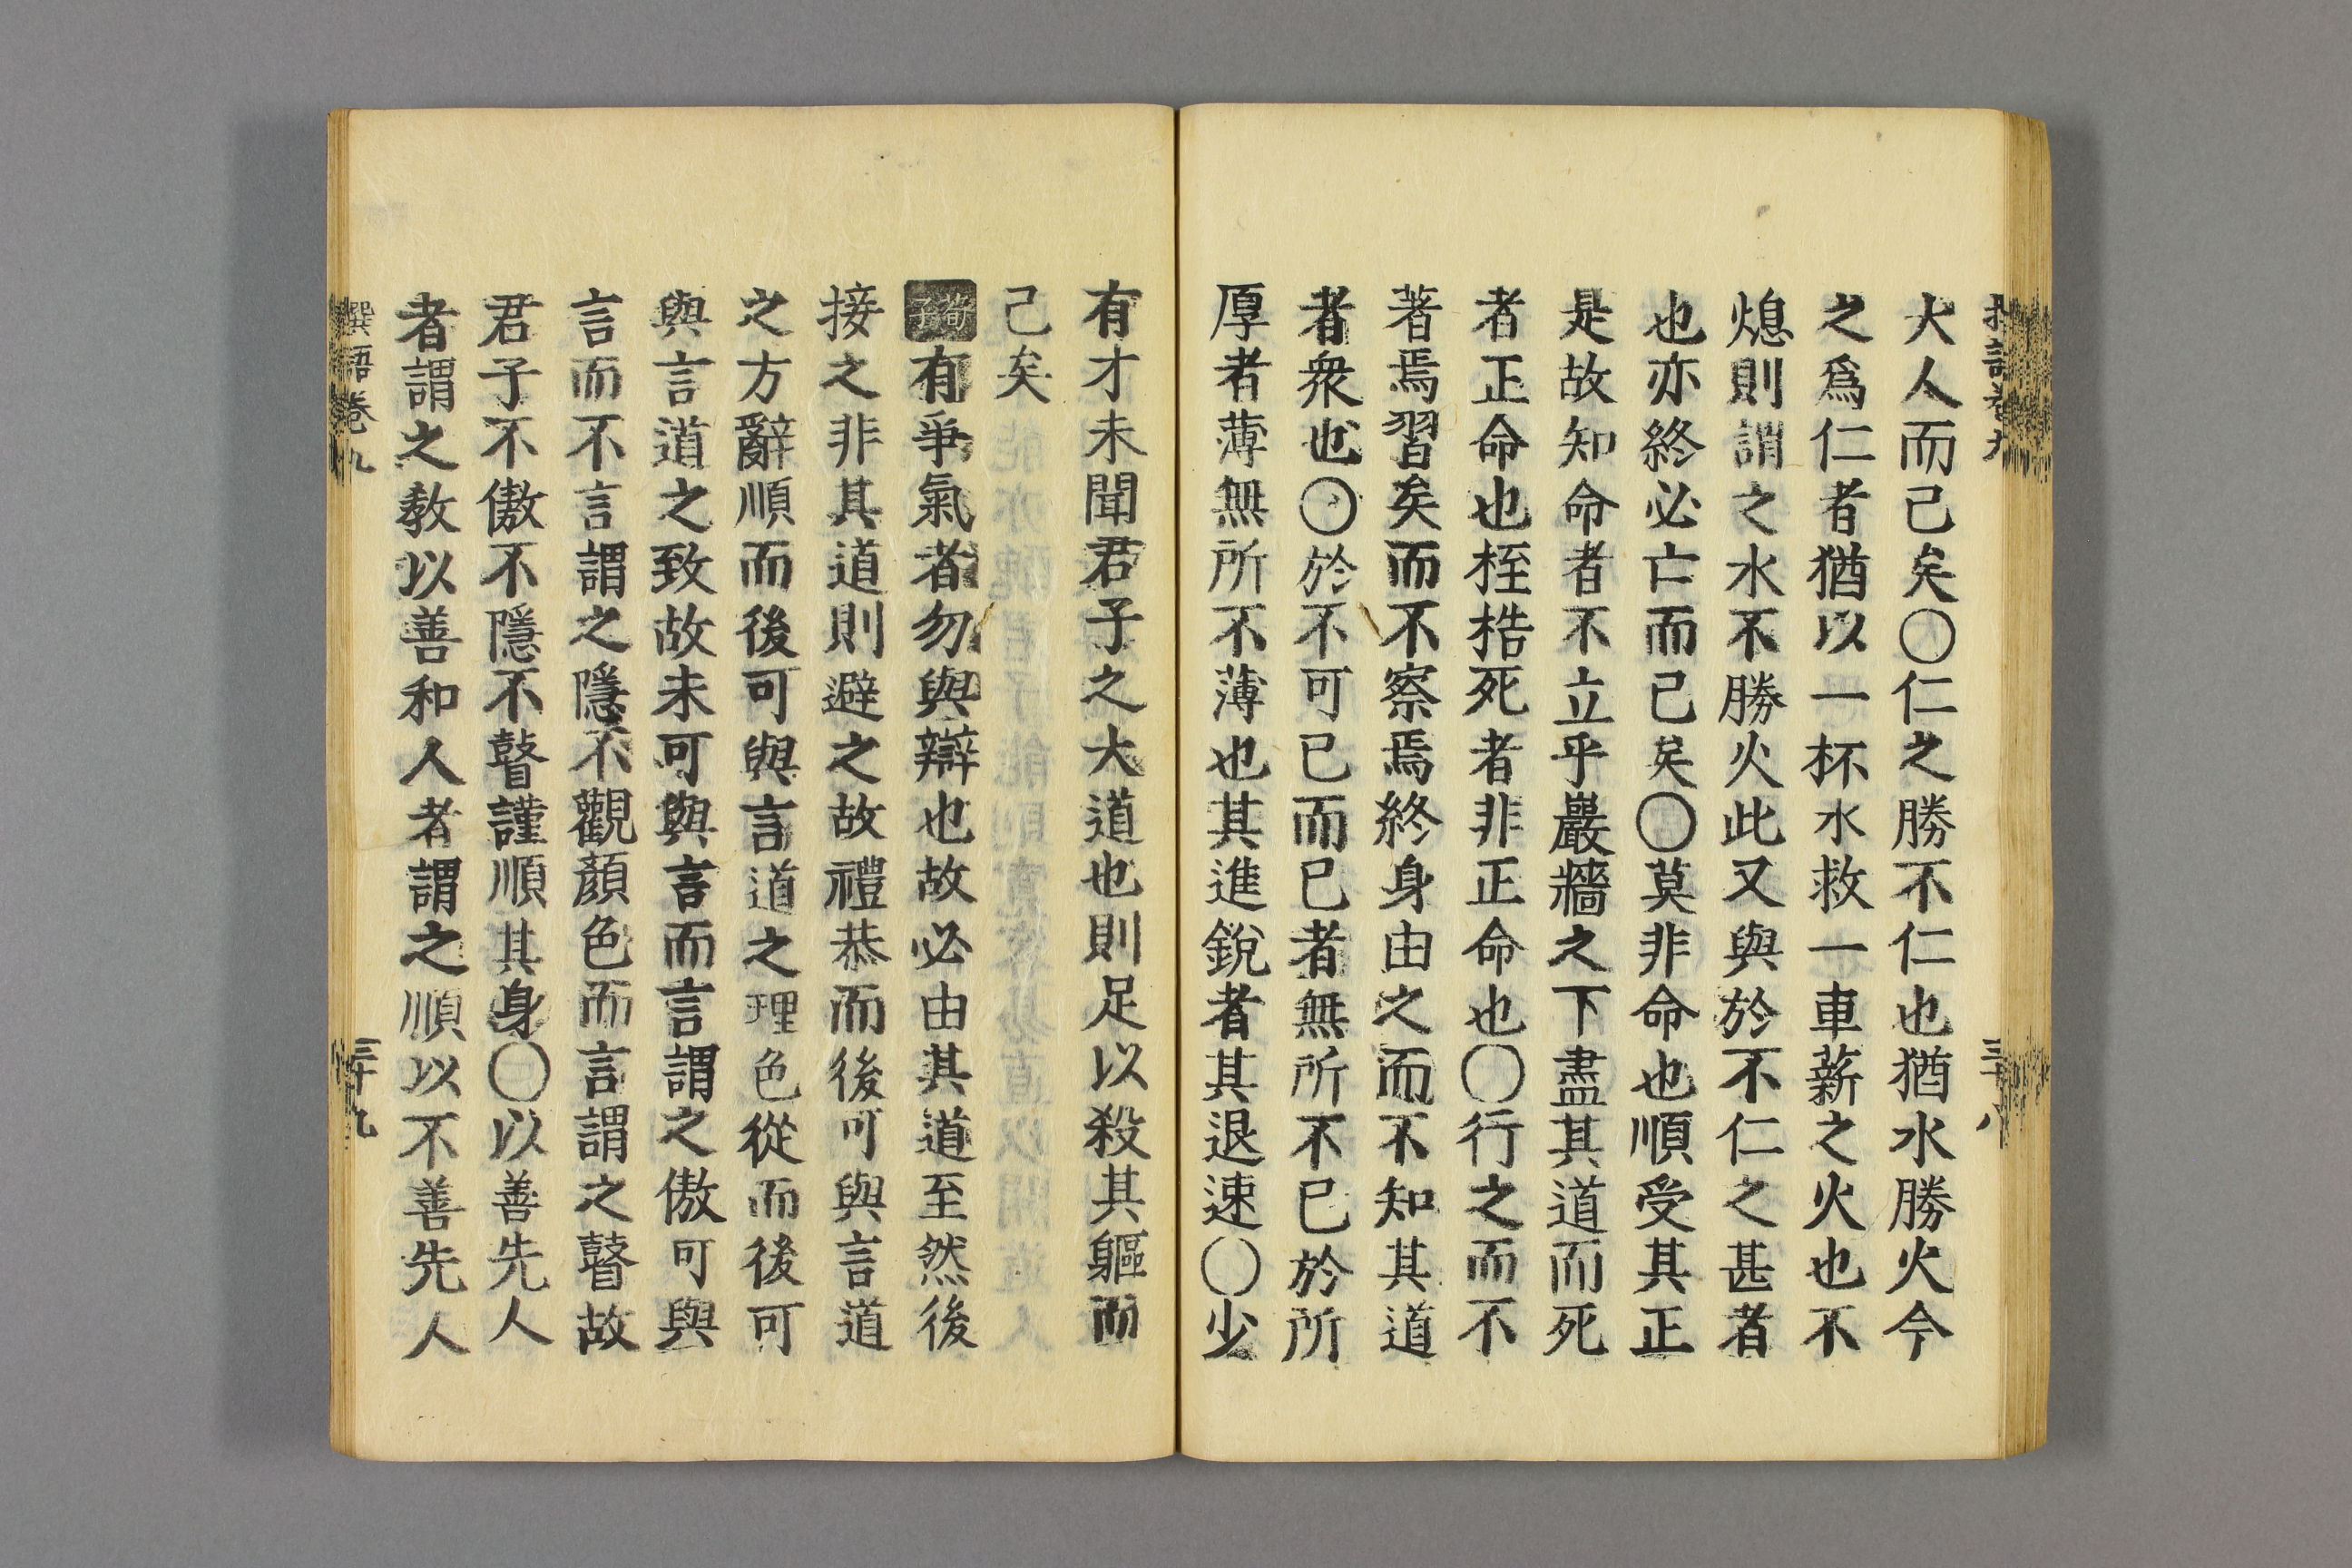 大人而己矣〇仁之勝不仁也猶水勝火今
之爲仁者猶以一杯水救一車薪之火也不
熄則謂之水不勝火此又與於不仁之甚者
也亦終必亡而己矣〇莫非命也順受其正
是故知命者不立乎巖牆之下盡其道而死
者正命也桎梏死者非正命也〇行之而不
著焉習矣而不察焉終身由之而不知其道
者衆也〇於不可已而已者無所不已於所
厚者薄無所不薄也其進銳者其退速〇少
有才未聞君子之大道也則足以殺其軀而
己矣
荀子有爭氣者勿與辯也故必由其道至然後
接之非其道則避之故禮恭而後可與言道
之方辭順而後可與言道之理色從而後可
與言道之致故未可與言而言謂之傲可與
言而不言謂之隱不觀顏色而言謂之瞽故
君子不傲不隱不瞽謹順其身〇以善先人
者謂之教以善和人者謂之順以不善先人
撰語卷九 三十九